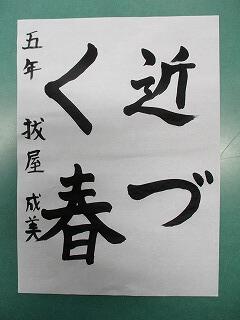 近づ
く春
五年 抜屋 成美